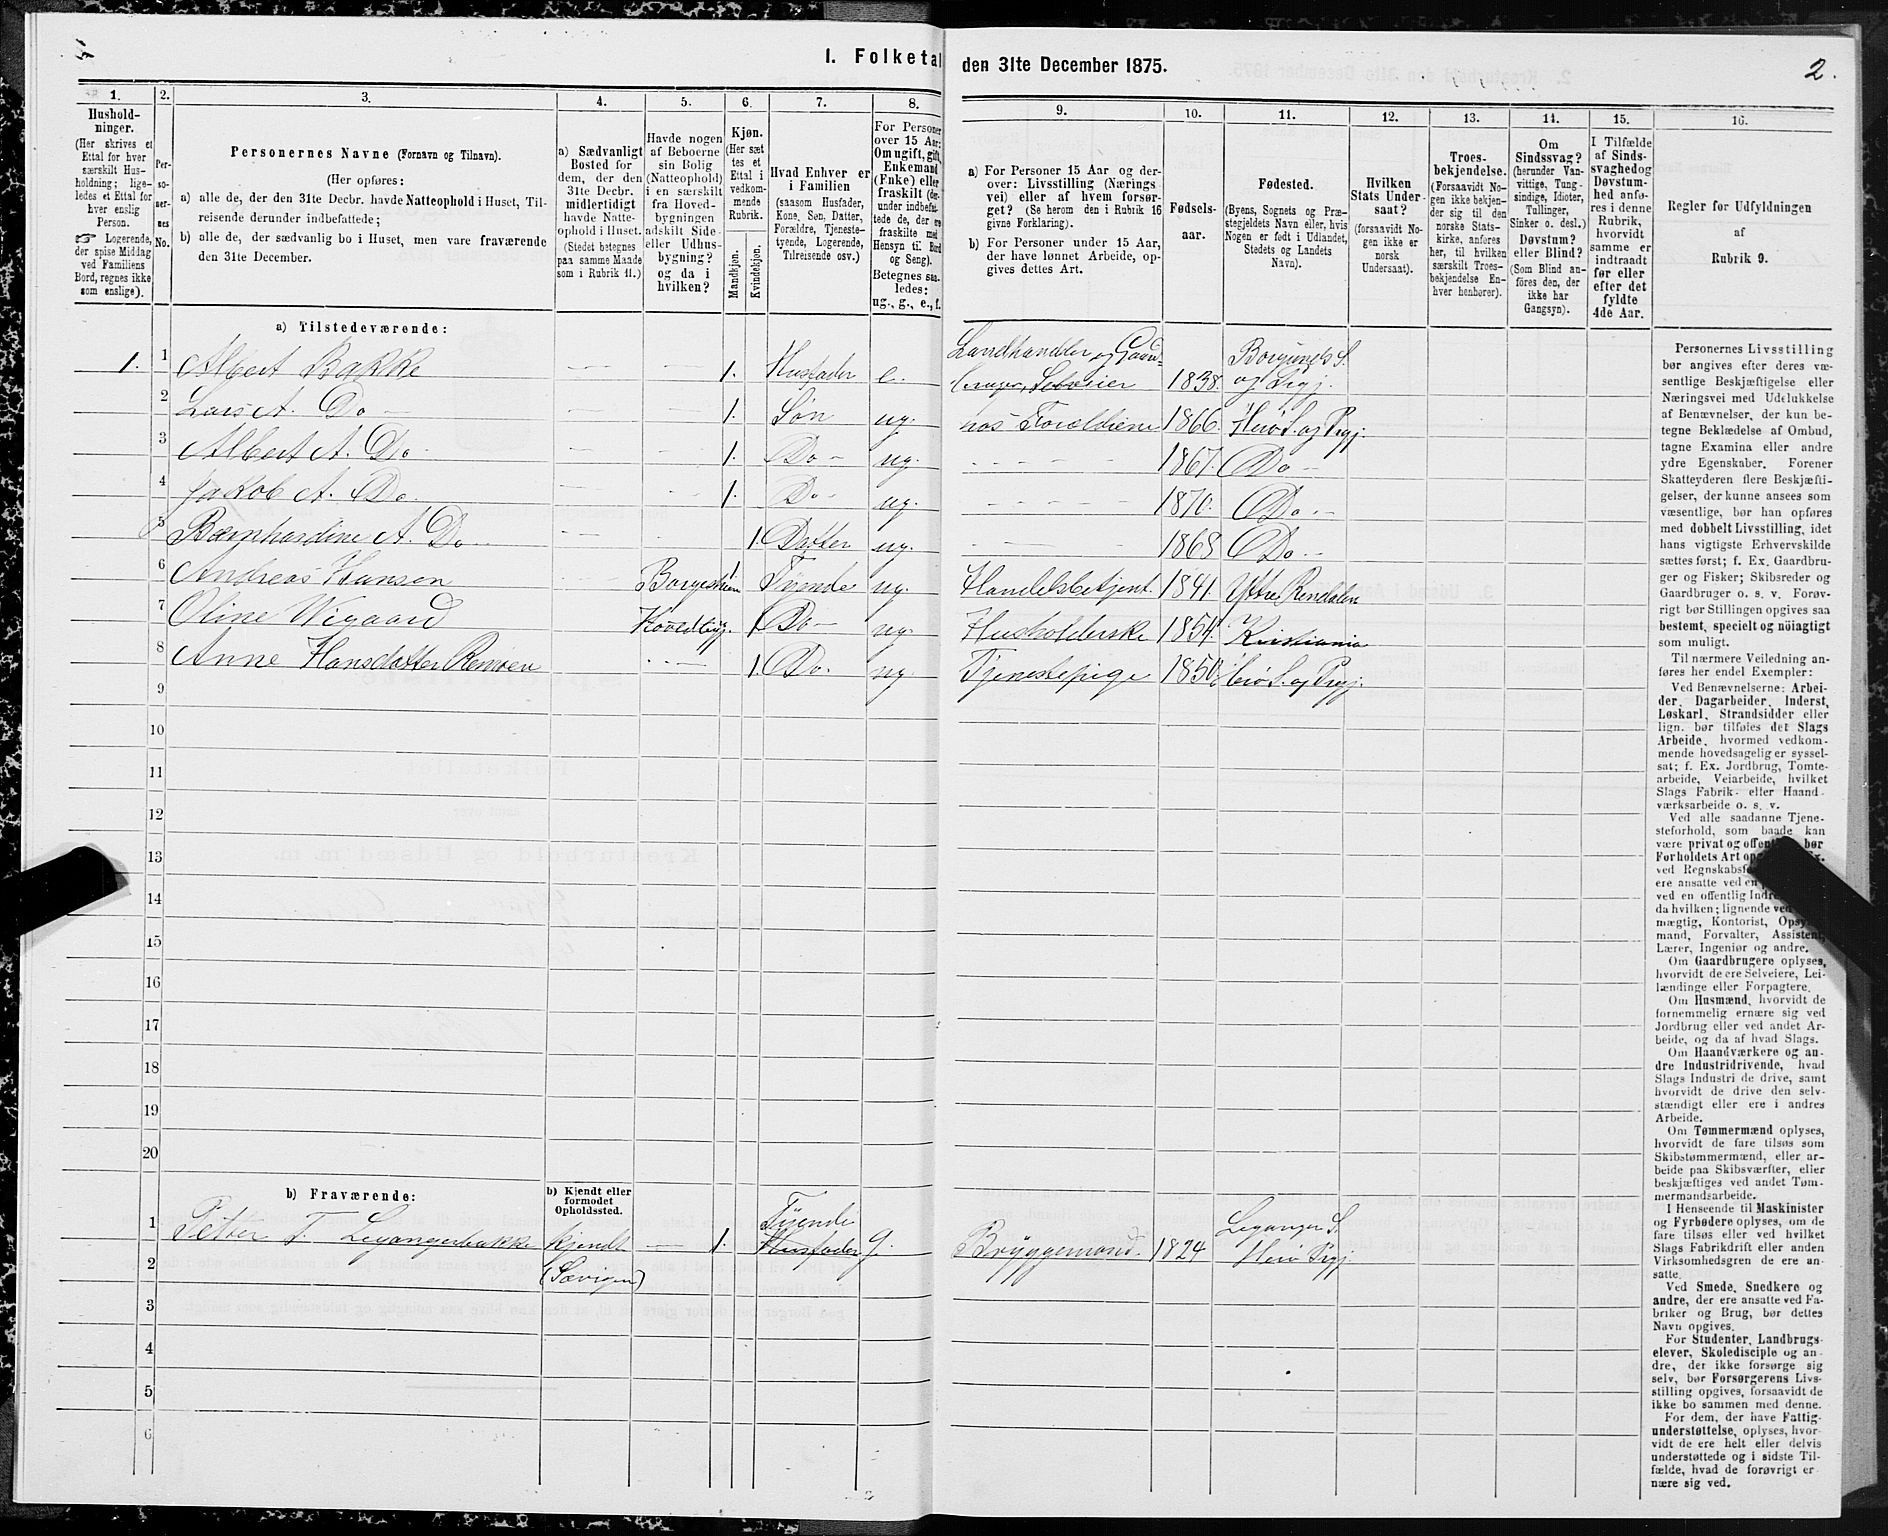 I. Folketal den 31te December 1875.
2.
1.
Hushold-
ninger.
(Her skrives et
Ettal for hver
særskilt Hus-
holdning; lige-
ledes et Ettal for
hver enslig
Person.
☞ Logerende,
der spise Middag
ved Familiens
Bord, regnes ikke
som enslige).
2.
Per-
so-
ner-
nes
No.
3.
Personernes Navne (Fornavn og Tilnavn).
(Her opføres:
a) alle de, der den 31te Decbr. havde Natteophold i Huset, Til-
reisende derunder indbefattede;
b) alle de, der sædvanlig bo i Huset, men vare fraværende
den 31te December.
4.
a) Sædvanligt
Bosted for
dem, der den
31te Decbr.
midlertidigt
havde Natte-
ophold i Huset.
(Stedet betegnes
paa samme Maade
som i Rubrik 11.)
5.
Havde nogen
af Beboerne
sin Bolig
(Natteophold)
i en særskilt
fra Hoved-
bygningen
adskilt Side-
eller Udhus-
bygning?
og da i
hvilken?
6.
Kjøn.
(Her sæt
tes et
Ettal i
vedkom-
mende
Rubrik.
Mandkjøn.
Kvindekjøn.
7.
Hvad Enhver er
i Familien
(saasom Husfader,
Kone, Søn, Datter,
Forældre, Tjeneste-
tyende, Logerende,
Tilreisende osv.)
8.
For Personer
over 15 Aar:
Om ugift, gift,
Enkemand
(Enke) eller
fraskilt (der-
under indbefat-
tede de, der ere
fraskilte med
Hensyn til Bord
og Seng).
Betegnes saa-
ledes:
ug., g., e., f.
9.
a) For Personer 15 Aar og der-
over: Livsstilling (Nærings
vei) eller af hvem forsør-
get? (Se herom den i Rubrik 16
givne Forklaring).
b) For Personer under 15 Aar,
der have lønnet Arbeide, op-
gives dettes Art.
10.
Fødsels-
aar.
11.
Fødested.
(Byens, Sognets og Præ-
stegjeldets Navn eller, hvis
Nogen er født i Udlandet,
Stedets og Landets
Navn).
12.
Hvilken
Stats Under-
saat?
(forsaavidt No-
gen ikke er
norsk
Undersaat).
13.
Troes-
bekjendelse.
(Forsaavidt No-
gen ikke bekjen-
der sig til den
norske Stats-
kirke, anføres
her, til hvilken
særskilt Troes-
bekjendelse En-
hver henhører).
14.
Om
Sindssvag?
(herunder Van-
vittige, Tung-
sindige, Idioter,
Tullinger,
Sinker o. desl.)
Døvstum?
eller Blind?
(Som Blind an-
føres den, der
ikke har
Gangsyn).
15.
I Tilfælde
af Sinds-
svaghed og
Døvstum-
hed anfø-
res i denne
Rubrik,
hvorvidt
samme er
indtraadt
før eller
efter det
fyldte
4de Aar.
16.
Regler for Udfyldningen
af
Rubrik 9.
a) Tilstedeværende:
1. 1 Albert Bakke 1. Husfader e. Landhandler og Gaard-
bruger, Selveier 1838. Borgunds S.
og Prgj.
2 Lars A. Do 1. Søn ug. hos Forældrene 1866. Herø S. og Prgj.
3 Albert A. Do 1. Do ug. 1867. Do
4 Jakob A. Do. 1. Do ug. 1870. Do.
5 Bærnhardine A. Do 1 Datter ug. 1868 Do.
6 Andreas Hansen 1 Tyende ug. Handelsbetjent. 1841. Yttre Rendalen
7 Oline Wigaard Hovedbyg. 1 Do ug. Husholderske 1854. Kristiania
8 Anne Hansdatter Remøen 1. Do. ug. Tjenestepige 1850 Herø S. og Prgj.
9
10
11
12
13
14
15
16
17
18
19
20
b) Fraværende:
b) Kjendt eller
formodet
Opholdssted.
1 Petter T. Leganger­bakke kjendt 1. Tyende
Husfader g. Bryggemand. 1824 Leganger S.
Herø Prgj.
2 (Sævigen)
3
4
5
6
Personernes Livsstilling
bør angives efter deres væ-
sentlige Beskjæftigelse eller
Næringsvei med Udelukkelse
af Benævnelser, der kun be-
tegne Beklædelse af Ombud,
tagne Examina eller andre
ydre Egenskaber. Forener
Skatteyderen flere Beskjæfti-
gelser, der kunne ansees som
væsentlige, bør han opføres
med dobbelt Livsstilling, idet
hans vigtigste Erhvervskilde
sættes først; f. Ex. Gaardbru-
ger og Fisker; Skibsreder og
Gaardbruger o. s. v. Forøv-
rigt bør Stillingen opgives saa
bestemt, specielt og nöiagtigt
som muligt.
Til nærmere Veiledning an-
føres her endel Exempler:
Ved Benævnelserne: Arbei-
der, Dagarbeider, Inderst,
Løskarl, Strandsidder eller
lign. bør tilføies det Slags
Arbeide, hvormed vedkom-
mende hovedsagelig er syssel-
sat; f. Ex. Jordbrug, Tomte-
arbeide, Veiarbeide, hvilket
Slags Fabrik- eller Haand-
værksarbeide o. s. v.
Ved alle saadanne Tjene-
steforhold, som baade kan
være privat og offen bør
Forholdets Art op
ved Regnskabsf
ere ansatte ved en
ved en offentlig Indre
da hvilken; lignende ve
mægtig, Kontorist, Opsy
mand, Forvalter, Assistent,
Lærer, Ingeniør og andre.
Om Gaardbrugere oplyses,
hvorvidt de ere Selveiere, Lei-
lændinge eller Forpagtere.
Om Husmænd, hvorvidt de
fornemmelig ernære sig ved
Jordbrug eller ved andet Ar-
beide, og da af hvad Slags.
Om Haandværkere og an-
dre Industridrivende, hvad
Slags Industri de drive, samt
hvorvidt de drive den selv-
stændigt eller ere i andres
Arbeide.
Om Tømmermænd oplyses,
hvorvidt de fare tilsøs som
Skibstømmermænd, eller ar-
beide paa Skibsværfter, eller
beskjæftiges ved andet Tøm-
mermandsarbeide.
I Henseende til Maskinister
og Fyrbødere oplyses, om de
fare tilsøs eller ved hvilket
Slags Fabrikdrift eller anden
Virksomhedsgren de ere an-
satte.
Ved Smede, Snedkere og
andre, der ere ansatte ved Fa-
briker og Brug, bør dettes
Navn opgives.
For Studenter, Landbrugs-
elever, Skoledisciple og an-
dre, der ikke forsørge sig
selv, bør Forsørgerens Livs-
stilling opgives, forsaavidt de
ikke bo sammen med denne.
For dem, der have Fattig-
understøttelse, oplyses, hvor-
vidt de ere helt eller delvis
understøttede og i sidste Til-
fælde, hvad de forøvrigt er-
nære sig ved.